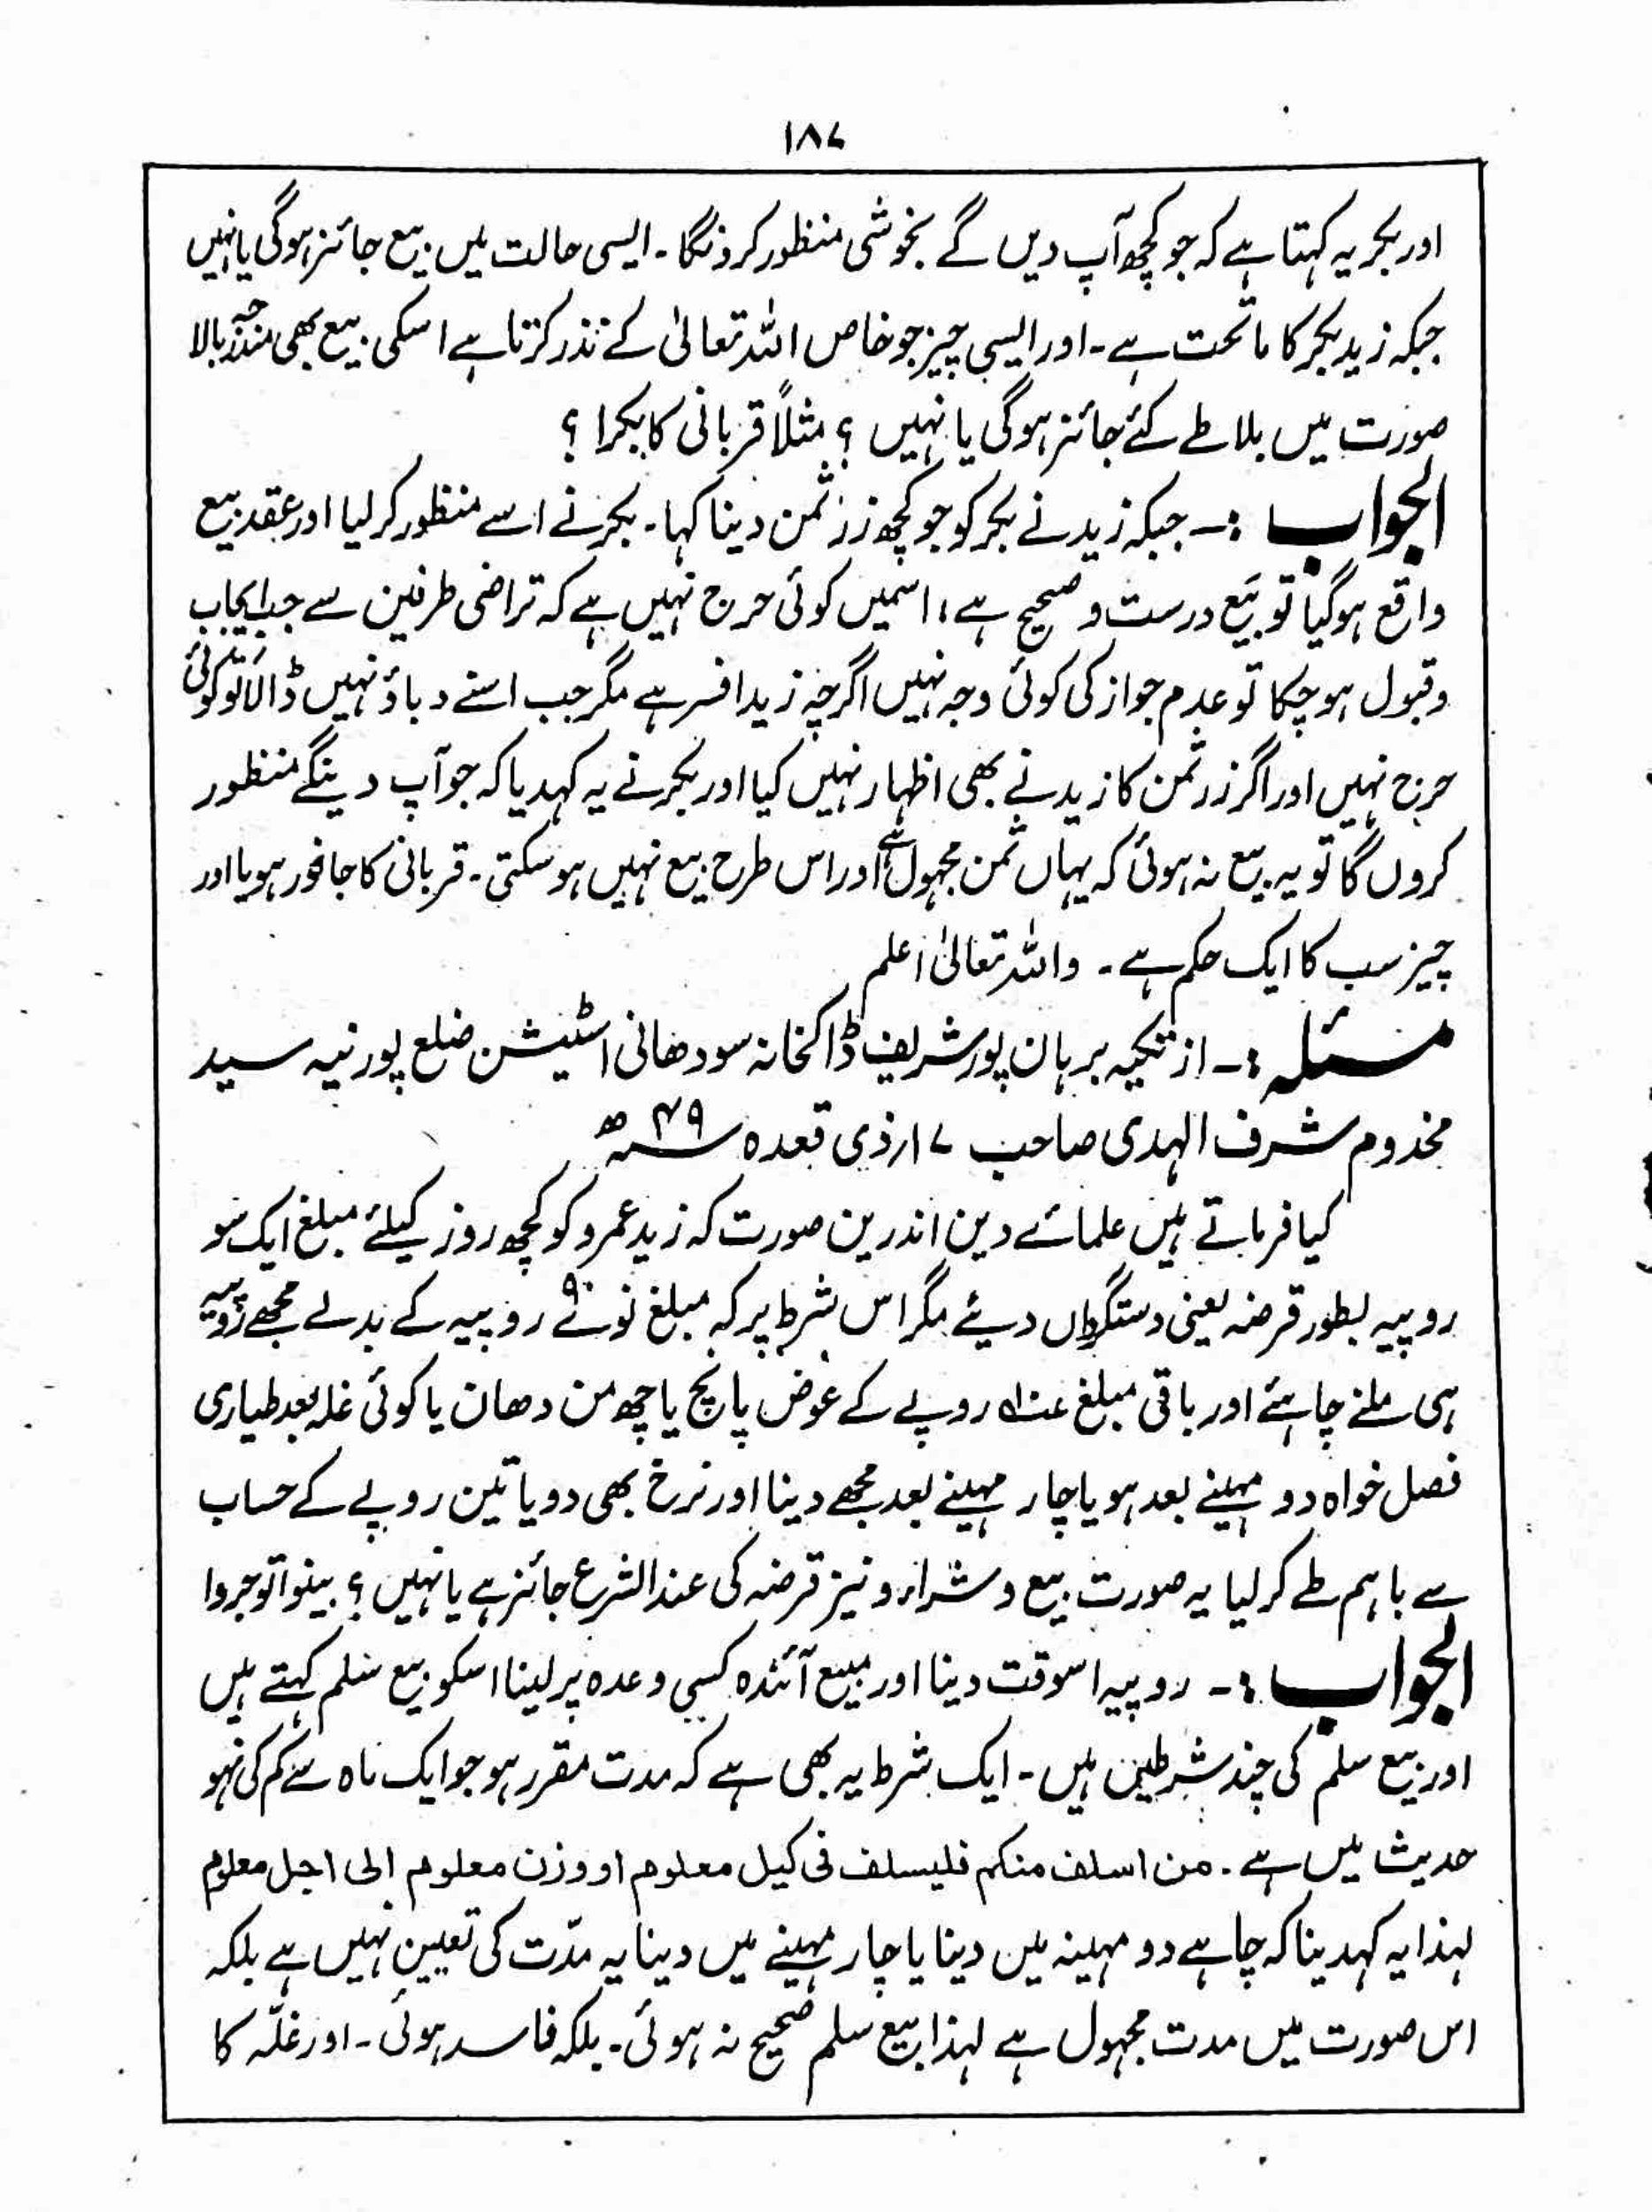 ۱۸۷
اور بکر یہ کہتا ہے کہ جو کچھ آپ دیں گے بخوشی منظور کرونگا۔ ایسی حالت میں بیع جائز ہوگی یا نہیں
جبکہ زید بکر کا ماتحت ہے۔ اور ایسی چیز جو خاص اللہ تعالیٰ کے نذر کرتا ہے اسکی بیع بھی مندرجہ بالا
صورت میں بلا طے کئے جائز ہوگی یا نہیں ؟ مثلاً قربانی کا بکرا ؟
الجواب :۔ جبکہ زید نے بکر کو جو کچھ زر ثمن دینا کہا۔ بکر نے اسے منظور کر لیا اور عقد بیع
واقع ہو گیا تو بیع درست و صحیح ہے، اسمیں کوئی حرج نہیں ہے کہ تراضی طرفین سے جب ایجاب
و قبول ہو چکا تو عدم جواز کی کوئی وجہ نہیں اگرچہ زید افسر ہے مگر جب اسنے دباؤ نہیں ڈالا تو کوئی
حرج نہیں اور اگر زر ثمن کا زید نے بھی اظہار نہیں کیا اور بکر نے یہ کہدیا کہ جو آپ دینگے منظور
کروں گا تو یہ بیع نہ ہوئی کہ یہاں ثمن مجہول ہے اور اس طرح بیع نہیں ہو سکتی۔ قربانی کا جانور ہو یا اور
چیز سب کا ایک حکم ہے۔ واللہ تعالیٰ اعلم
مسئلہ :۔ از تکیہ برہان پور شریف ڈاکخانہ سودھانی اسٹیشن ضلع پورنیہ سید
مخدوم شرف الہدی صاحب ۱۷ ذی قعدہ سنہ ۴۹ ھ
کیا فرماتے ہیں علمائے دین اندرین صورت کہ زید عمرو کو کچھ روز کیلئے مبلغ ایک سو
روپیہ بطور قرضہ یعنی دستگرداں دیئے مگر اس شرط پر کہ مبلغ نوے ۹۰ روپیہ کے بدلے مجھے روپیہ
ہی ملنے چاہئے اور باقی مبلغ روپے کے عوض پانچ یا چھ من دھان یا کوئی غلہ بعد طیاری
فصل خواہ دو مہینے بعد ہو یا چار مہینے بعد مجھے دینا اور نرخ بھی دو یا تین روپے کے حساب
سے باہم طے کر لیا یہ صورت بیع و شراء و نیز قرضہ کی عند الشرع جائز ہے یا نہیں ؟ بینوا توجروا
الجواب :۔ روپیہ اسوقت دینا اور مبیع آئندہ کسی وعدہ پر لینا اسکو بیع سلم کہتے ہیں
اور بیع سلم کی چند شرطیں ہیں۔ ایک شرط یہ بھی ہے کہ مدت مقرر ہو جو ایک ماہ سے کم کی نہو
حدیث میں ہے۔ من اسلف منکم فلیسلف فی کیل معلوم او وزن معلوم الی اجل معلوم
لہذا یہ کہدینا کہ چاہے دو مہینہ میں دینا یا چار مہینے میں دینا یہ مدّت کی تعیین نہیں ہے بلکہ
اس صورت میں مدت مجہول ہے لہذا بیع سلم صحیح نہ ہوئی۔ بلکہ فاسد ہوئی۔ اور غلّہ کا